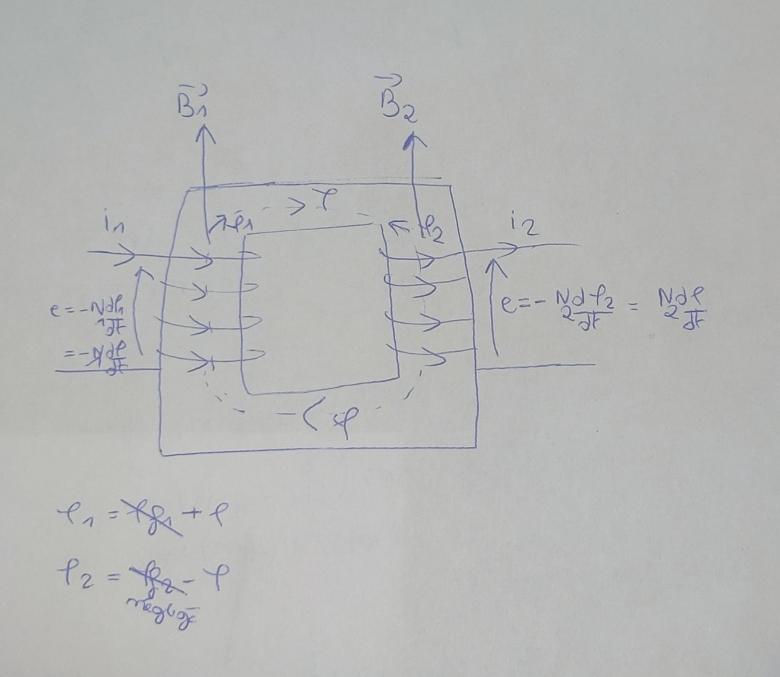 B⃗1 B⃗2
φ
φ1 φ2
i1 i2
e = -N1 dφ1/dt
= -N1 dφ/dt
e = - N2 dφ2/dt = N2 dφ/dt
φ
φ1 = φf1 + φ
φ2 = φf2 - φ